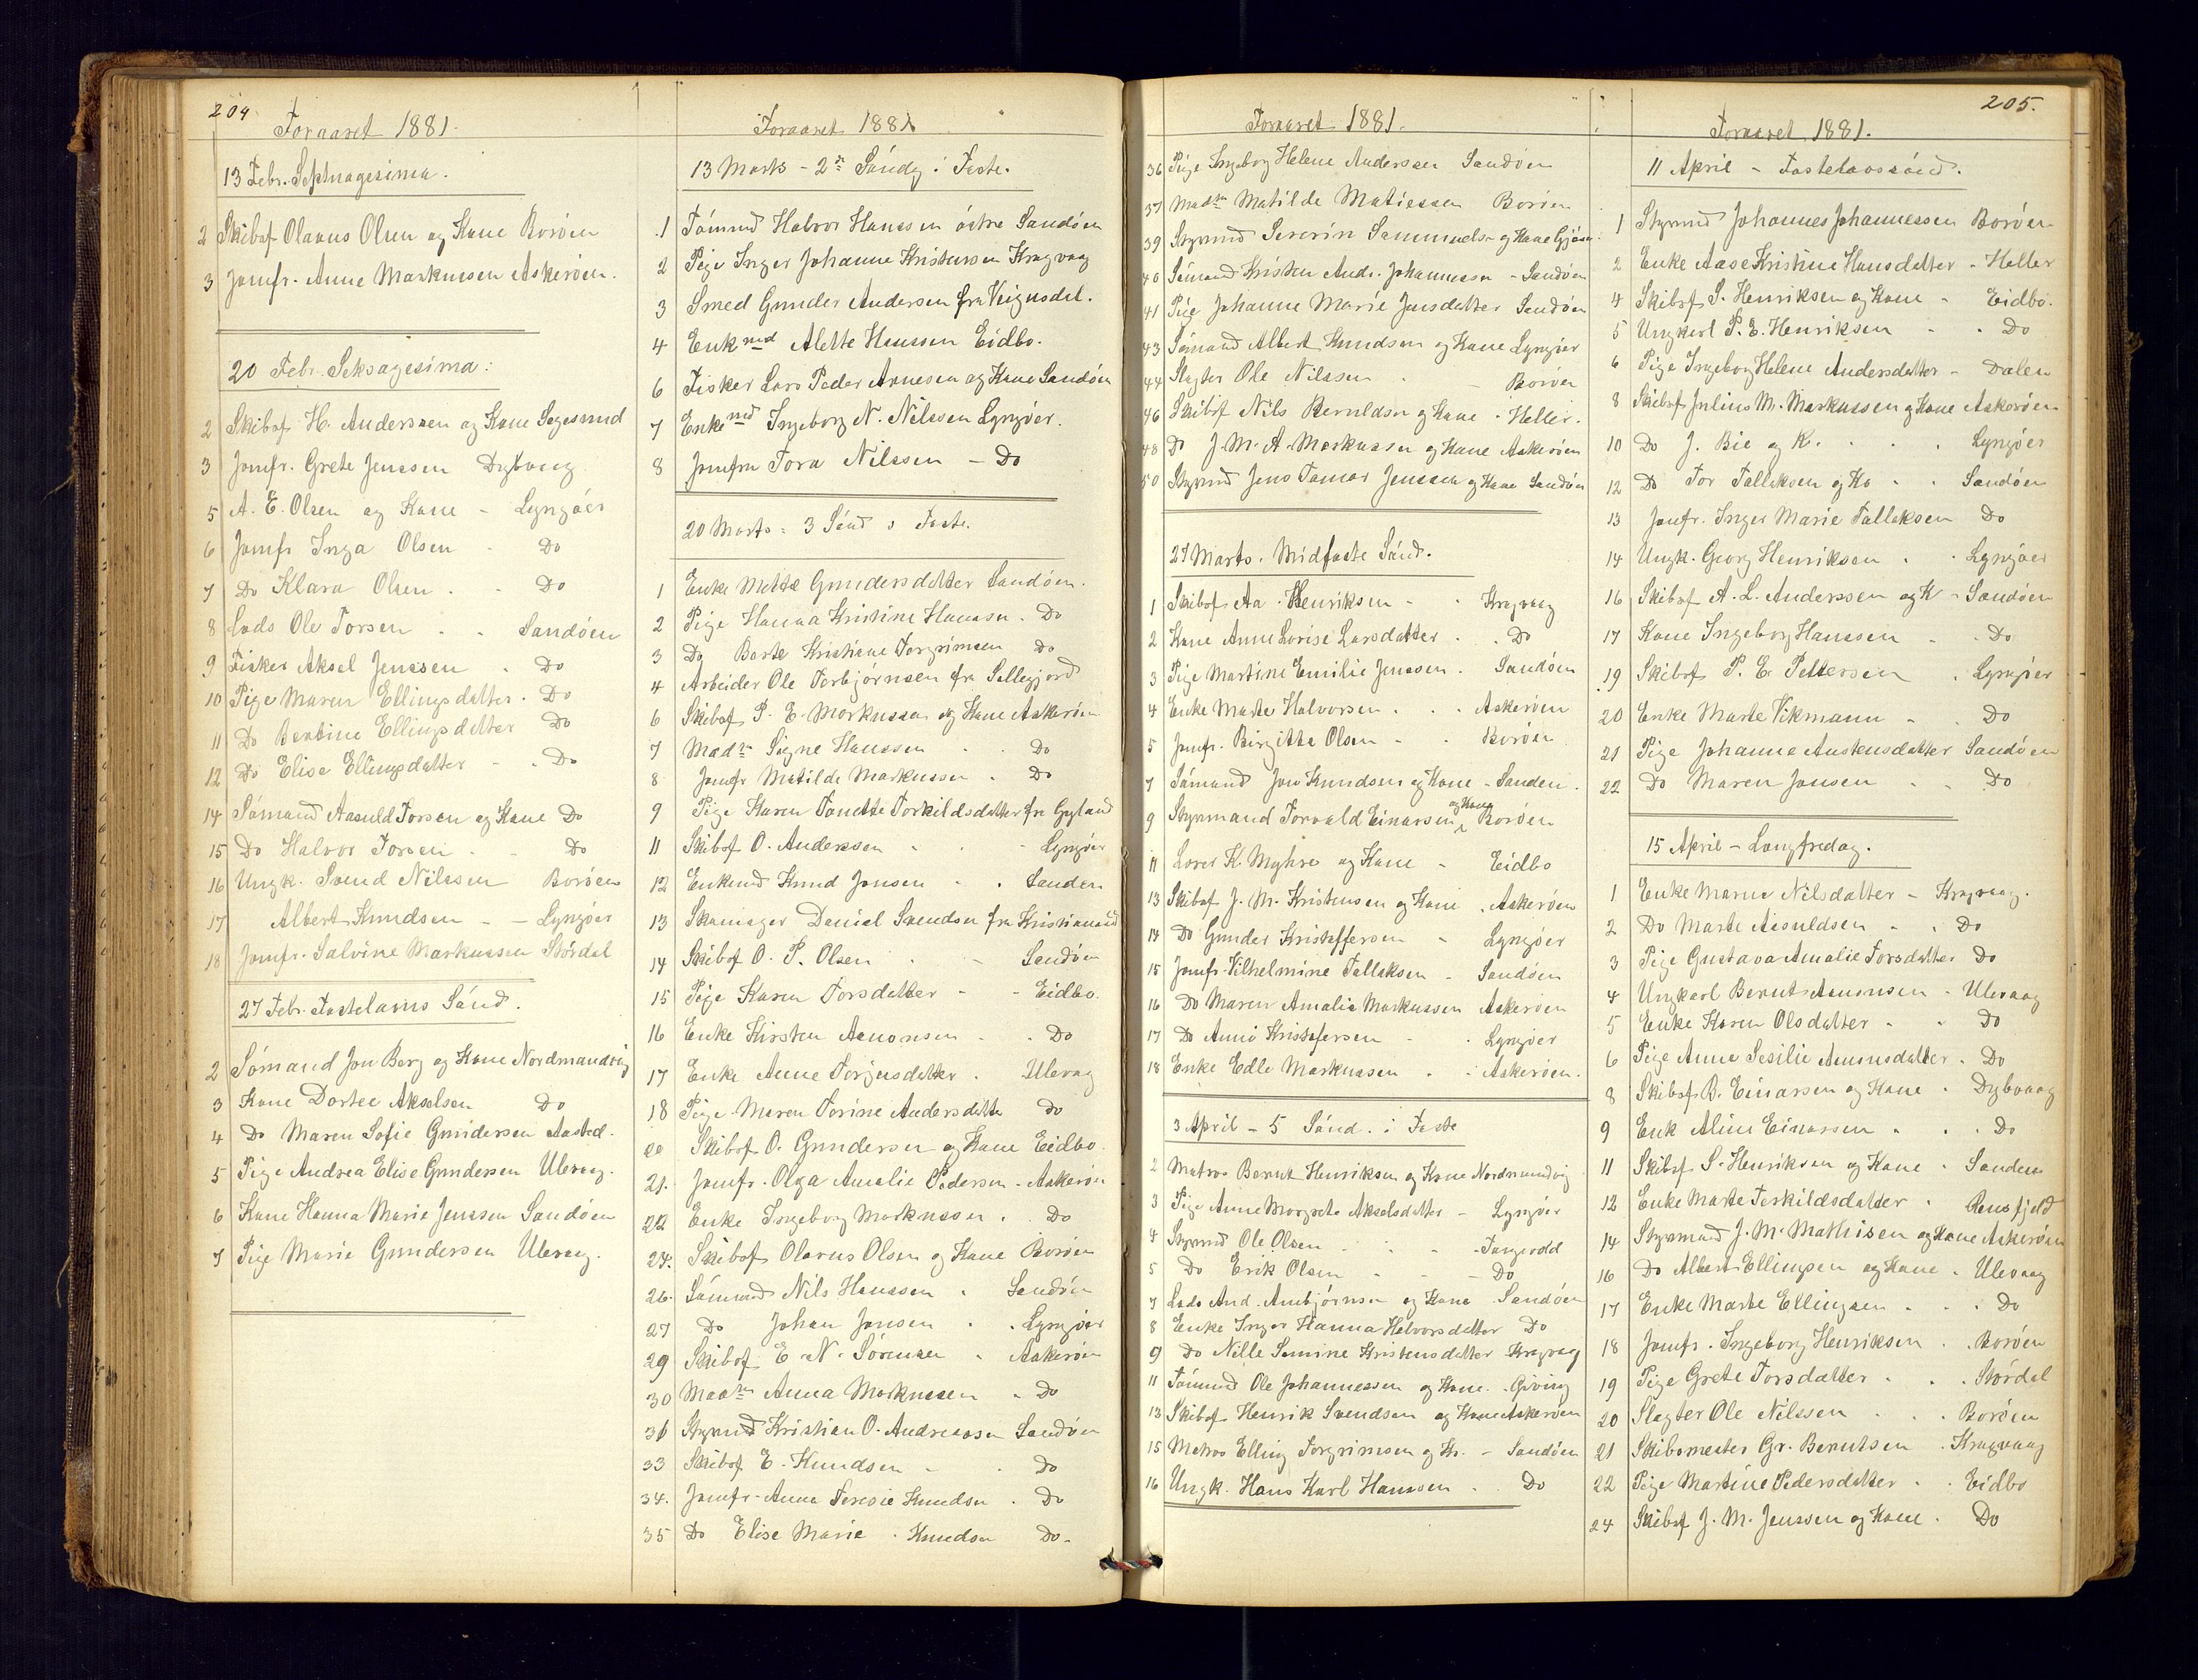 204
Foraaret 1881.
13 Febr. Septuagesima.
2 Skibsf Olavus Olsen og Kone Borøen
3 Jomfr. Anne Markussen Askerøen.
20 Febr. Seksagesima.
2 Skibsf H. Anderssen og Kone Sagesund
3 Jomfr. Grete Jenssen Dybvaag
5 A. E. Olsen og Kone - Lyngøer
6 Jomfr Inga Olsen - Do
7 Do Klara Olsen - Do
8 Lods Ole Torsen - - Sandøen
9 Fisker Aksel Jenssen - Do
10 Pige Maren Ellingsdatter - Do
11 Do Bertine Ellingsdatter Do
12 Do Elise Ellingsdatter - Do
14 Sømand Aasuld Torsen og Kone Do
15 Do Halvor Torsen - - Do
16 Ungk. Svend Nilssen Borøen
17 Albert Knudsen - - Lyngøer
18 Jomfr. Salvine Markussen Stórdal
27 Febr. Fastelavns Sónd.
2 Sømand Jon Berg og Kone Nordmandvig
3 Kone Dortee Akselsen Do
4 Do Maren Sofie Gundersen Aasted.
5 Pige Andrea Elise Gundersen Ulevaag.
6 Kone Hanna Marie Jenssen Sandøen
7 Pige Marie Gundersen Ulevaag.
Foraaret 1881
13 Marts - 2n Sóndg i Faste.
1 Sómnd Halvor Hanssen óstre Sandøen
2 Pige Inger Johanne Kristenssen Kragvaag
3 Smed Gunder Andersen fra Vegusdal.
4 Enkmd Alette Hanssen Eidbo.
6 Fisker Lars Peder Arnesen og Kone Sandøen
7 Enkemd Ingeborg N. Nilssen Lyngøer.
8 Jomfru Tora Nilssen - Do
20 Marts - 3 Sónd i Faste.
1 Enke Mette Gundersdatter Sandøen.
2 Pige Hanna Kristine Hanssen. Do
3 Do Berte Kristiane Torgrimsen Do
4 Arbeider Ole Torbjørnsen fra Sellegjord
6 Skibsf P. E. Markussen og Kone Askerøen
7 Madm Signe Hanssen - Do
8 Jomfr Matilde Markussen - Do
9 Pige Karen Tonette Torkildsdatter fra Gyland
11 Skibsf O. Anderssen - - Lyngøer
12 Enkemd Knud Jonsen - - Sanden
13 Skomager Daniel Svendsen fra Kristiansand
14 Skibsf O. P. Olsen - - Sandøen
15 Pige Karen Torsdatter - - Eidbo.
16 Enke Kirsten Aanonsen - - Do
17 Enke Anne Torjusdatter - Ulevaag
18 Pige Maren Torine Andersdatte Do
20 Skibsf O. Gundersen og Kone Eidbo.
21. Jomfr. Olga Amalie Pedersen - Askerøen
22 Enke Ingeborg Markussen - Do
24. Skibsf Olavus Olsen og Kone Borøen
26. Sómand Nils Hanssen - Sandøen
27 Do Johan Jonsen - Lyngøer
29 Skibsf E. N. Sørensen - Askerøen
30 Madm Anna Markussen - Do
31 Stymd Kristian O. Andreassen Sandøen
33 Skibsf E. Knudsen - - Do
34. Jomfr. Anne Teresie Knudsen - Do
35 Do Elise Marie Knudsen Do -
Foraaret 1881.
36 Pige Ingeborg Helene Anderssen Sandøen
37 Madm Matilde Matiessen Borøen
39 Stymnd Severin Sammuelsn og Kone
40 Sómand Kristen Andr. Johannessen - Sandøen
41 Pige Johanne Marie Jensdatter Sandøen
43 Sómand Albert Knudsen og Kone Lyngøer
44 Slagter Ole Nilssen - - Borøen
46 Skibsf Nils Bernldsn og Kone - Heller.
48 Do J. M. A. Markussen og Kone Askerøen
50 Stymnd Jens Tomas Jenssen og Kone Sandøen
27 Marts. Midfaste Sónd.
1 Skibsf. Aa. Henriksen - - Kragvaag
2 Kone Anne Lovise Larsdatter - - Do
3 Pige Martine Emilie Jenssen - Sandøen
4 Enke Marte Halvorsen - - Askerøen
5 Jomfr. Birgitte Olsen - - Borøen
7 Sómand Jon Knudsen og Kone - Sanden.
9 Styrmand Torvald Einarsen og Kone Borøen
11 Lover K. Myhre og Kone - Eidbo
13 Skibsf J. M. Kristensen og Kone - Askerøen
14 Do Gunder Kristoffersen - Lyngøer
15 Jomfr. Vilhelmine Tallaksen - Sandøen
16 Do Maren Amalie Markussen Askerøen
17 Do Anne Kristofersen - - Lyngøer
18 Enke Edle Markussen - - Askerøen.
3 April - 5 Sónd. i Faste
2 Matros Bernt Henriksen og Kone Nordmandvig
3 Pige Anne Morgrete Akselsdatter - Lyngøer
4 Stymnd Ole Olsen - - - Tangevold
5 Do Erik Olsen - - - Do
7 Lods And. Aanbjørnsen og Kone Sandøen
8 Enke Inger Hanna Halvorsdatter Do
9 Do Nille Semine Kristensdatter Kragvaag
11 Sómnd Ole Johannessen og Kone - Giving
13 Skibsf Henrik Svendsen og Kone Askerøen
15 Matros Elling Torgrimsen og K. - Sandøen
16 Ungk. Hans Karl Hanssen - Do
205.
Foraaret 1881.
11 April - Fastelavnssónd.
1 Stymnd Johannes Johannessen Borøen
2 Enke Aase Kristine Hansdatter - Heller
4 Skibsf S. Henriksen og Kone - Eidbo.
5 Ungkarl P. E. Henriksen - - Do
6 Pige Ingeborg Helene Andersdatter - Dalen
8 Skibsf Julius M. Markussen og Kone Askerøen
10 Do J. Bie og K. - - - Lyngøer
12 Do Tor Tallaksen og Ko - - Sandøen
13 Jomfr. Inger Marie Tallaksen Do
14 Ungk. Georg Henriksen - - Lyngøer
16 Skibsf A. L. Anderssen og K - Sandøen
17 Kone Ingeborg Hanssen - - Do
19 Skibsf P. E. Pettersen - Lyngøer
20 Enke Marte Vikmann - - Do
21 Pige Johanne Austensdatter Sandøen
22 Do Maren Jonsen - - Do
15 April - Langfredag.
1 Enke Maren Nilsdatter - Kragvaag.
2 Do Marte Aasuldsen - - Do
3 Pige Gustava Amalie Torsdatter Do
4 Ungkarl Bernt Aanonsen - Ulevaag
5 Enke Karen Olsdatter - - Do
6 Pige Anne Sesilie Aanonsdatter - Do
8 Skibsf B. Einarsen og Kone - Dybvaag
9 Enk Aline Einarsen - - Do
11 Skibsf S. Henriksen og Kone - Sanden
12 Enke Marte Terkildsdatter - Rensfjeld
14 Styrmand J. M. Mathisen og Kone Askerøen
16 Do Albert Ellingsen og Kone - Ulevaag
17 Enke Marte Ellingsen - - - Do
18 Jomfr. Ingeborg Henriksen - Borøen
19 Pige Grete Torsdatter - - Stórdal
20 Slagter Ole Nilssen - - - Borøen
21 Skibsmester Gr. Berntsen - Kragvaag
22 Pige Martine Pedersdatter - - Eidbo
24 Skibsf J. M. Jenssen og Kone - Do